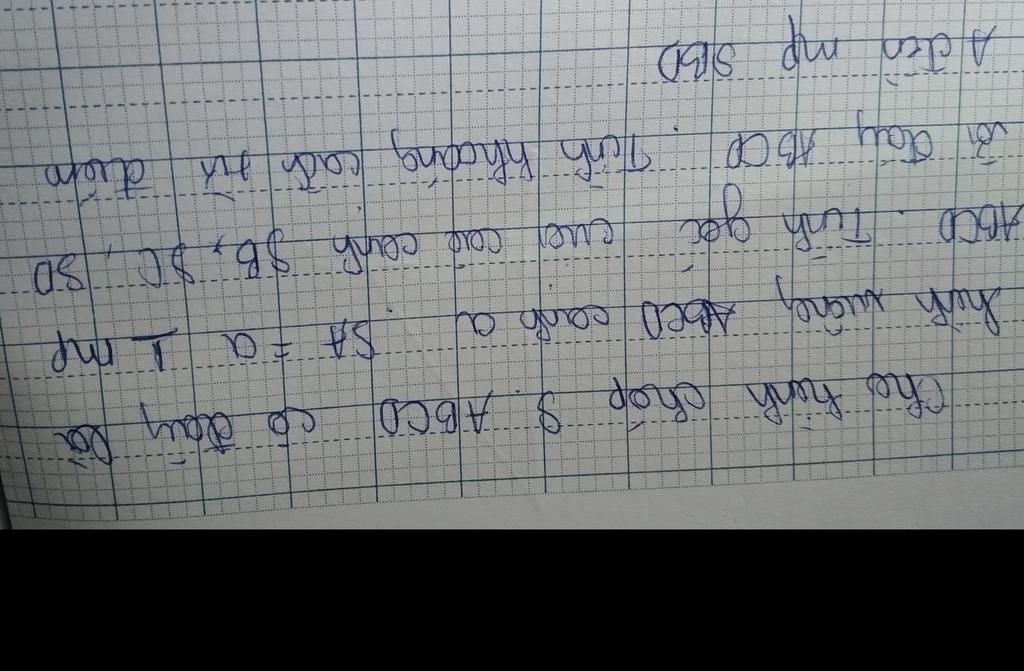 Cho hình chóp S. ABCD có đáy là
hình vuông ABCD cạnh a SA = a ⊥ mp
ABCD. Tính góc của các cạnh SB, SC, SD
với đáy ABCD. Tính khoảng cách từ điểm
A đến mp SBD